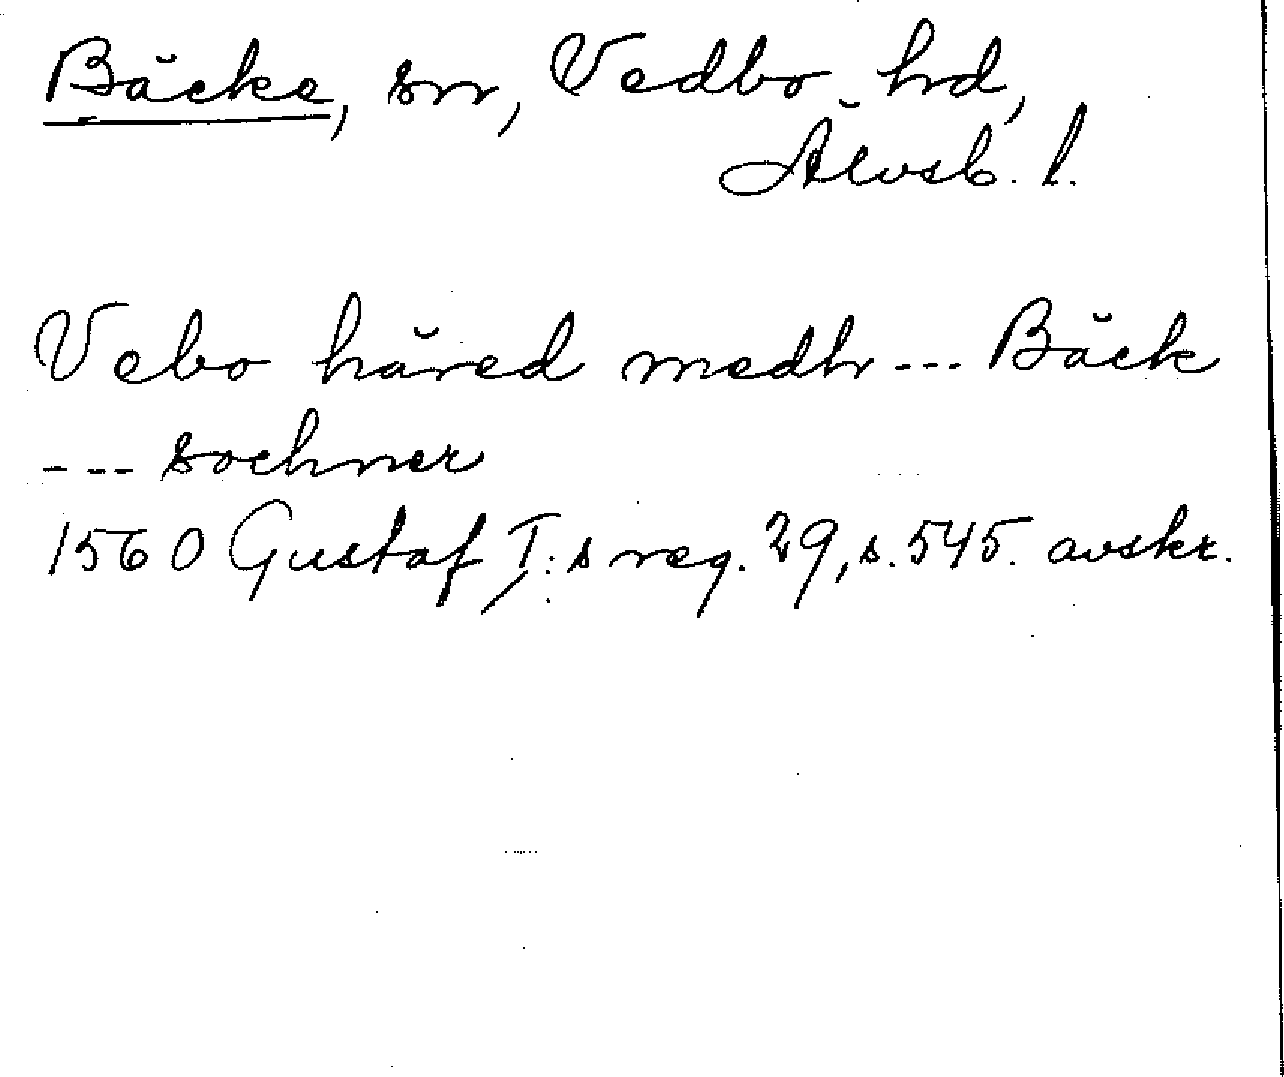 Bäcke, sn, Vedbo hd,
Älvsb. l.
Vebo häred medh --- Bäck
--- sochner
1560 Gustaf I:s reg. 29, s. 545. avskr.